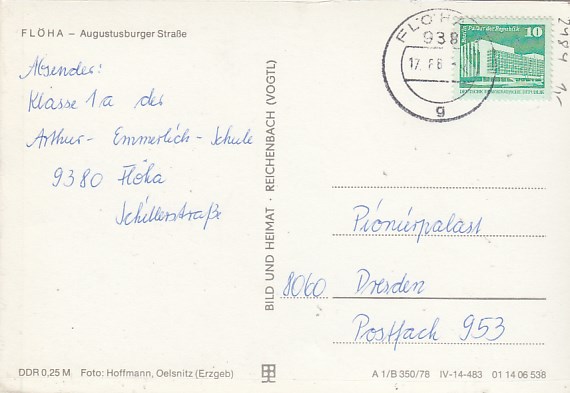 FLÖHA – Augustusburger Straße
Absender:
Klasse 1a der
Arthur-Emmerlich-Schule
9380 Flöha
Schillerstraße
BILD UND HEIMAT · REICHENBACH (VOGTL)
FLÖHA
938
17. 8 6.
g
Palast der Republik 10
DEUTSCHE DEMOKRATISCHE REPUBLIK
2484
Pionierpalast
8060 Dresden
Postfach 953
DDR 0,25 M Foto: Hoffmann, Oelsnitz (Erzgeb)
A 1/B 350/78 IV-14-483 01 14 06 538